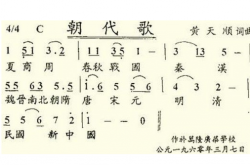 4/4 C 朝代歌 黄天顺 词曲
1 5̲1̲ 3. 2 | 1 1̲3̲5̲ – | 5̲.3̲ 2 – |
夏商周 春秋戰國 秦漢
5̲5̲ 6̲3̲ 5. 6̲ | 5̲ 5̲1̲ 2 – | 5̲.3̲ 2 – |
魏晉南北朝隋 唐宋元 明清
5̲ 5̲ 6 2 1 – ||
民國 新中國
作於萬隆廣萊學校
公元一九六零年三月七日